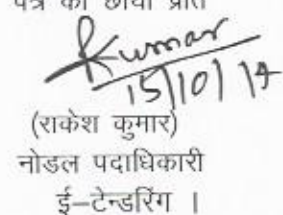 पत्र की छाया प्रति
Kumar
15/10/14
(राकेश कुमार)
नोडल पदाधिकारी
ई–टेन्डरिंग ।